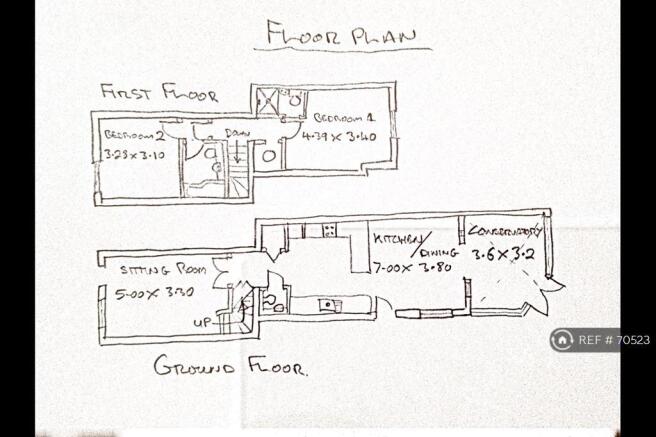 FLOOR PLAN
FIRST FLOOR
BEDROOM 2
3.28 x 3.10
DOWN
BEDROOM 1
4.39 x 3.40
SITTING ROOM
5.00 x 3.30
UP
KITCHEN/
DINING
7.00 x 3.80
CONSERVATORY
3.6 x 3.2
GROUND FLOOR.
REF # 70523